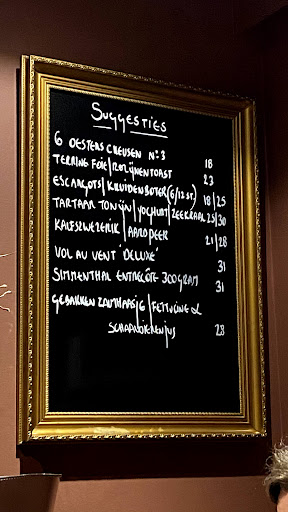 Suggesties
6 OESTERS CREUSEN N°3 18
TERRINE FOIE/ROZIJNENTOAST 23
ESCARGOTS/KRUIDENBOTER (6/12 ST.) 18/25
TARTAAR TONIJN/YOGHURT/ZEEKRAAL 25/30
KALFSZWEZERIK/AARDPEER 21/28
VOL AU VENT 'DELUXE' 31
SIMMENTHAL ENTRECÔTE 300GRAM 31
GEBAKKEN ZALMHAASJE/FETTUCINE &
SCHAALDIERENJUS 28